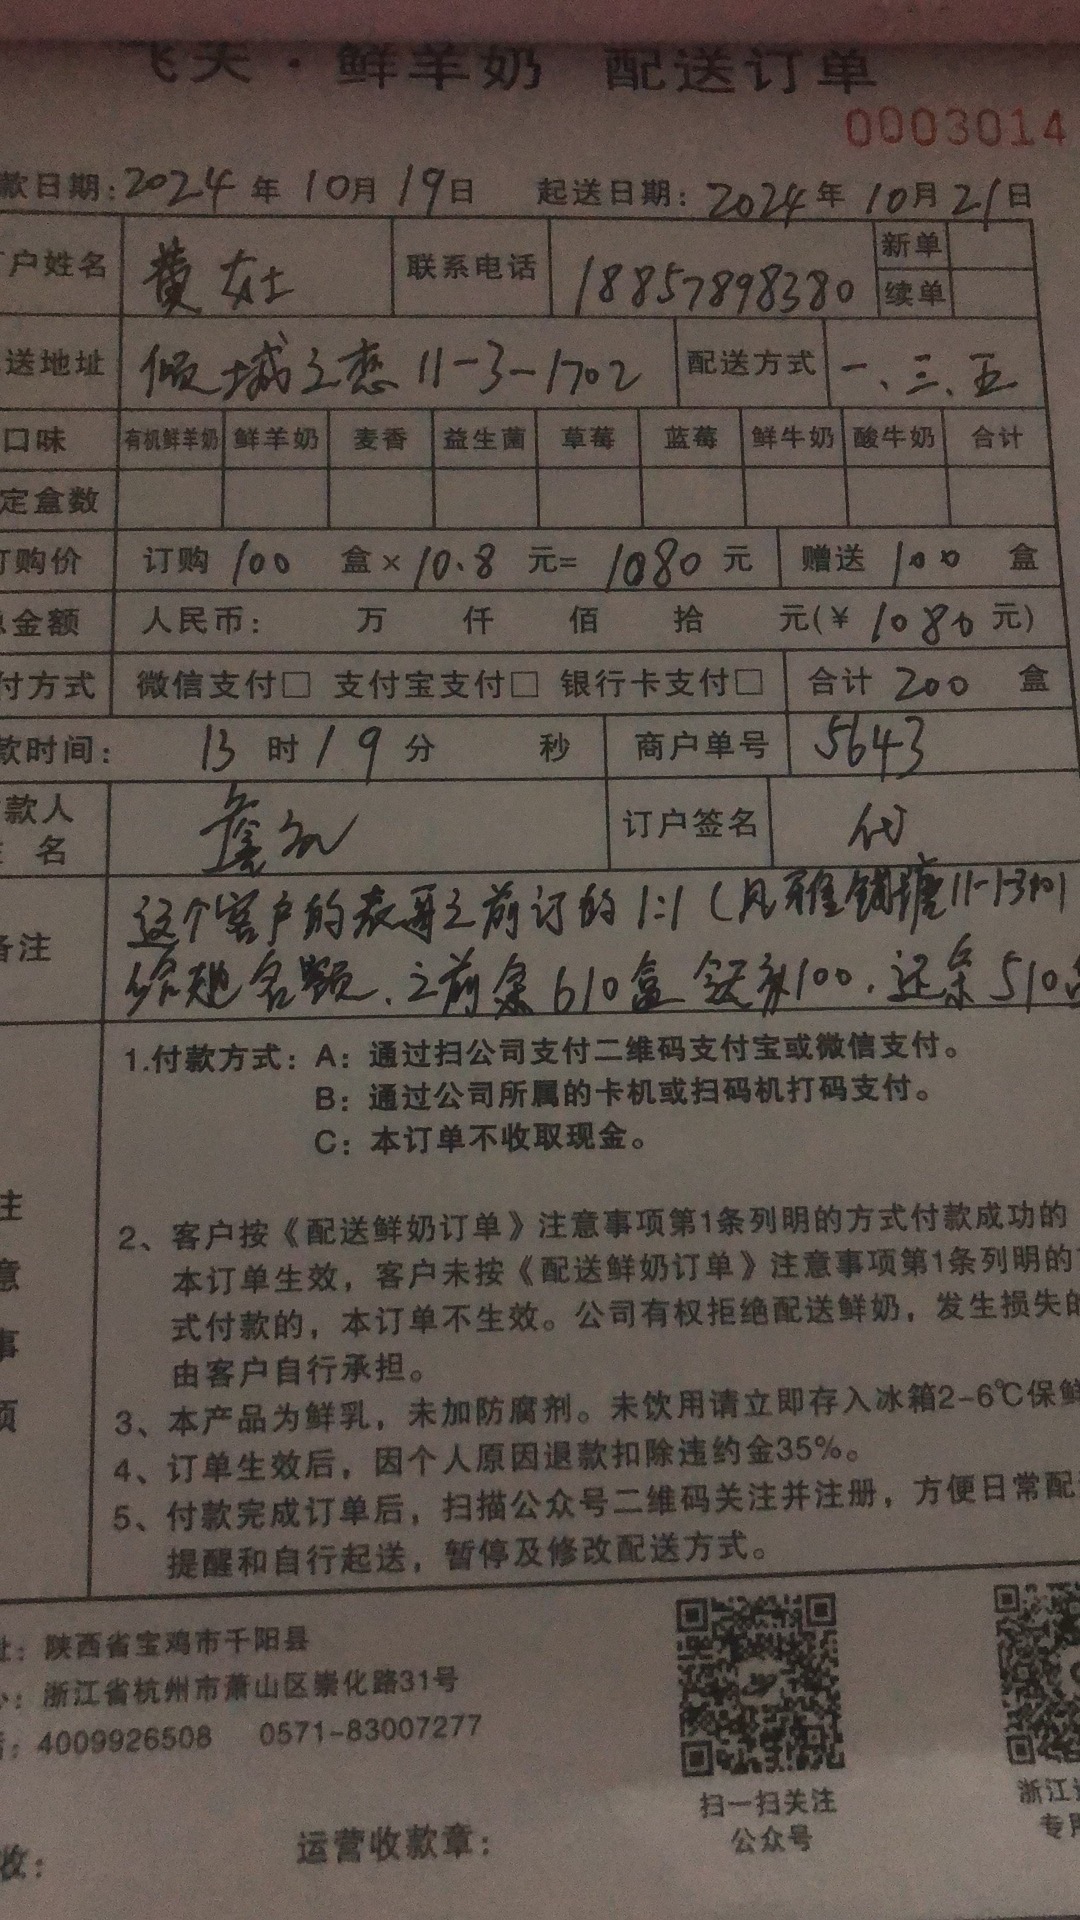 飞天·鲜羊奶 配送订单
0003014
款日期:2024年10月19日 起送日期:2024年10月21日
户姓名 黄女士 联系电话 18857898380 新单
续单
送地址 倾城之恋11-3-1702 配送方式 一、三、五
口味 有机鲜羊奶 鲜羊奶 麦香 益生菌 草莓 蓝莓 鲜牛奶 酸牛奶 合计
定盒数
订购价 订购 100 盒×10.8 元= 1080 元 赠送 100 盒
金额 人民币: 万 仟 佰 拾 元(¥ 1080 元)
付方式 微信支付□ 支付宝支付□ 银行卡支付□ 合计 200 盒
款时间: 13 时 19 分 秒 商户单号 5643
款人
名 订户签名 代
备注 这个客户的表哥之前订的1:1(风雅钱塘11-1-
给她名额、之前余610盒 今天扣100.还余510
1.付款方式:A:通过扫公司支付二维码支付宝或微信支付。
B:通过公司所属的卡机或扫码机打码支付。
C:本订单不收取现金。
注
意
事
项
2、客户按《配送鲜奶订单》注意事项第1条列明的方式付款成功的
本订单生效，客户未按《配送鲜奶订单》注意事项第1条列明的
式付款的，本订单不生效。公司有权拒绝配送鲜奶，发生损失的
由客户自行承担。
3、本产品为鲜乳，未加防腐剂。未饮用请立即存入冰箱2-6℃保鲜
4、订单生效后，因个人原因退款扣除违约金35%。
5、付款完成订单后，扫描公众号二维码关注并注册，方便日常配
提醒和自行起送，暂停及修改配送方式。
址:陕西省宝鸡市千阳县
:浙江省杭州市萧山区崇化路31号
:4009926508 0571-83007277
扫一扫关注
公众号
浙江
专用
收:
运营收款章: